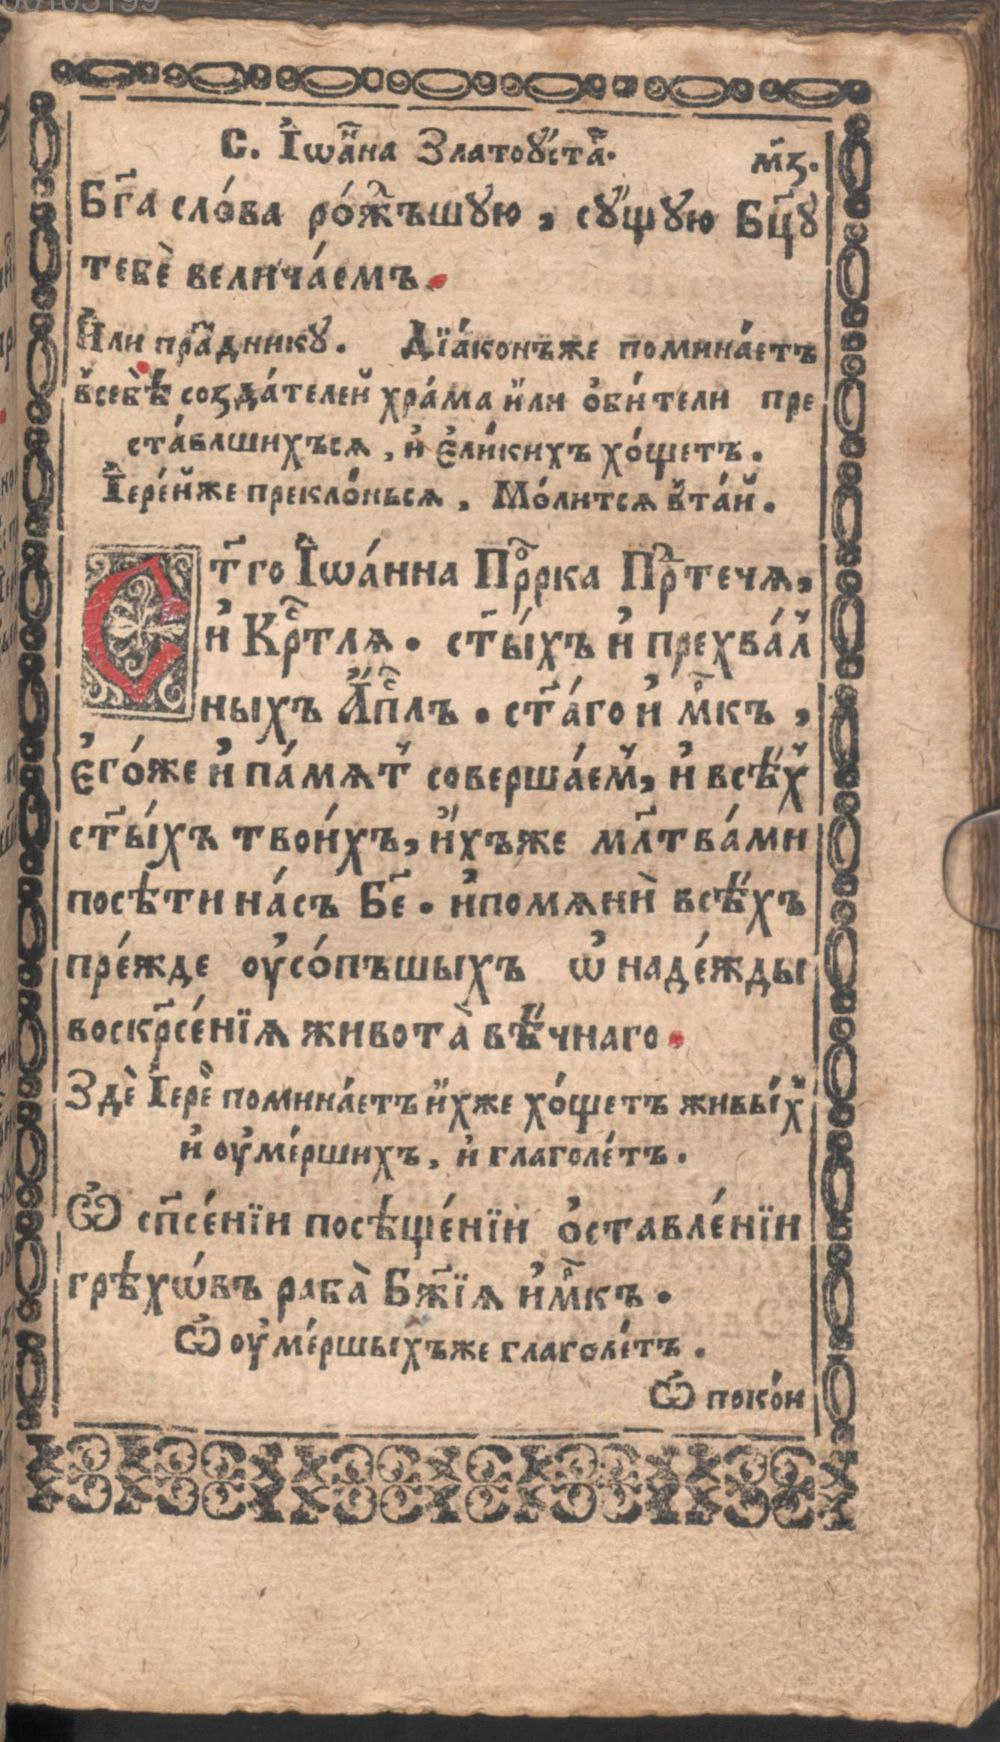 00103199
С. І҆ѡа҃нна Златоꙋ́ста҃.
м҃з.
Бг҃а сло́ва ро́ж̾ъшꙋю , сꙋ́щꙋю Бц҃ꙋ
тебѐ велича́емъ.
И҆ли пра҃днику. Дїа́конъже помина́етъ
в̾себѣ̀ созда́телей хра́ма и҆ли ѻ҆би́тели пре
ста́влшихъсѧ , и҆ е҆ли́кихъ хо́щетъ .
І҆ере́йже прекло́ньсѧ , Мо́литсѧ в̾та́й .
Ст҃го І҆ѡа́нна Пр҃рка Пр҃течѧ,
и҆ Кр҃тлѧ . ст҃ы́хъ и҆ прехва́л
ныхъ А҆п҃лъ . ст҃а́го и҆ м҃к̾ъ ,
є҆го́же и҆ па́мѧт̾ соверша́ем̾, и҆ всѣ́х̾
ст҃ы́хъ твои́хъ, и҆́хъже мл҃тва́ми
посѣти на́съ Бе҃ . и҆помѧнѝ всѣ́хъ
пре́жде ᲂу҆со́пъшыхъ ѡ҆ наде́жды
воскр҃се́нїѧ живота̀ вѣ́чнаго .
Здѐ І҆ерѐ помина́етъ и҆́хже хо́щетъ живы́х̾
и҆ ᲂу҆ме́рших̾ъ , и҆ глаго́летъ .
Ѽ сп҃се́нїи посѣще́нїи ѻ҆ставле́нїи
грѣхѡ́въ раба̀ Бж҃їѧ и҆м҃къ .
Ѽ ᲂу҆ме́ршыхъже глаго́летъ .
Ѽ поко́и